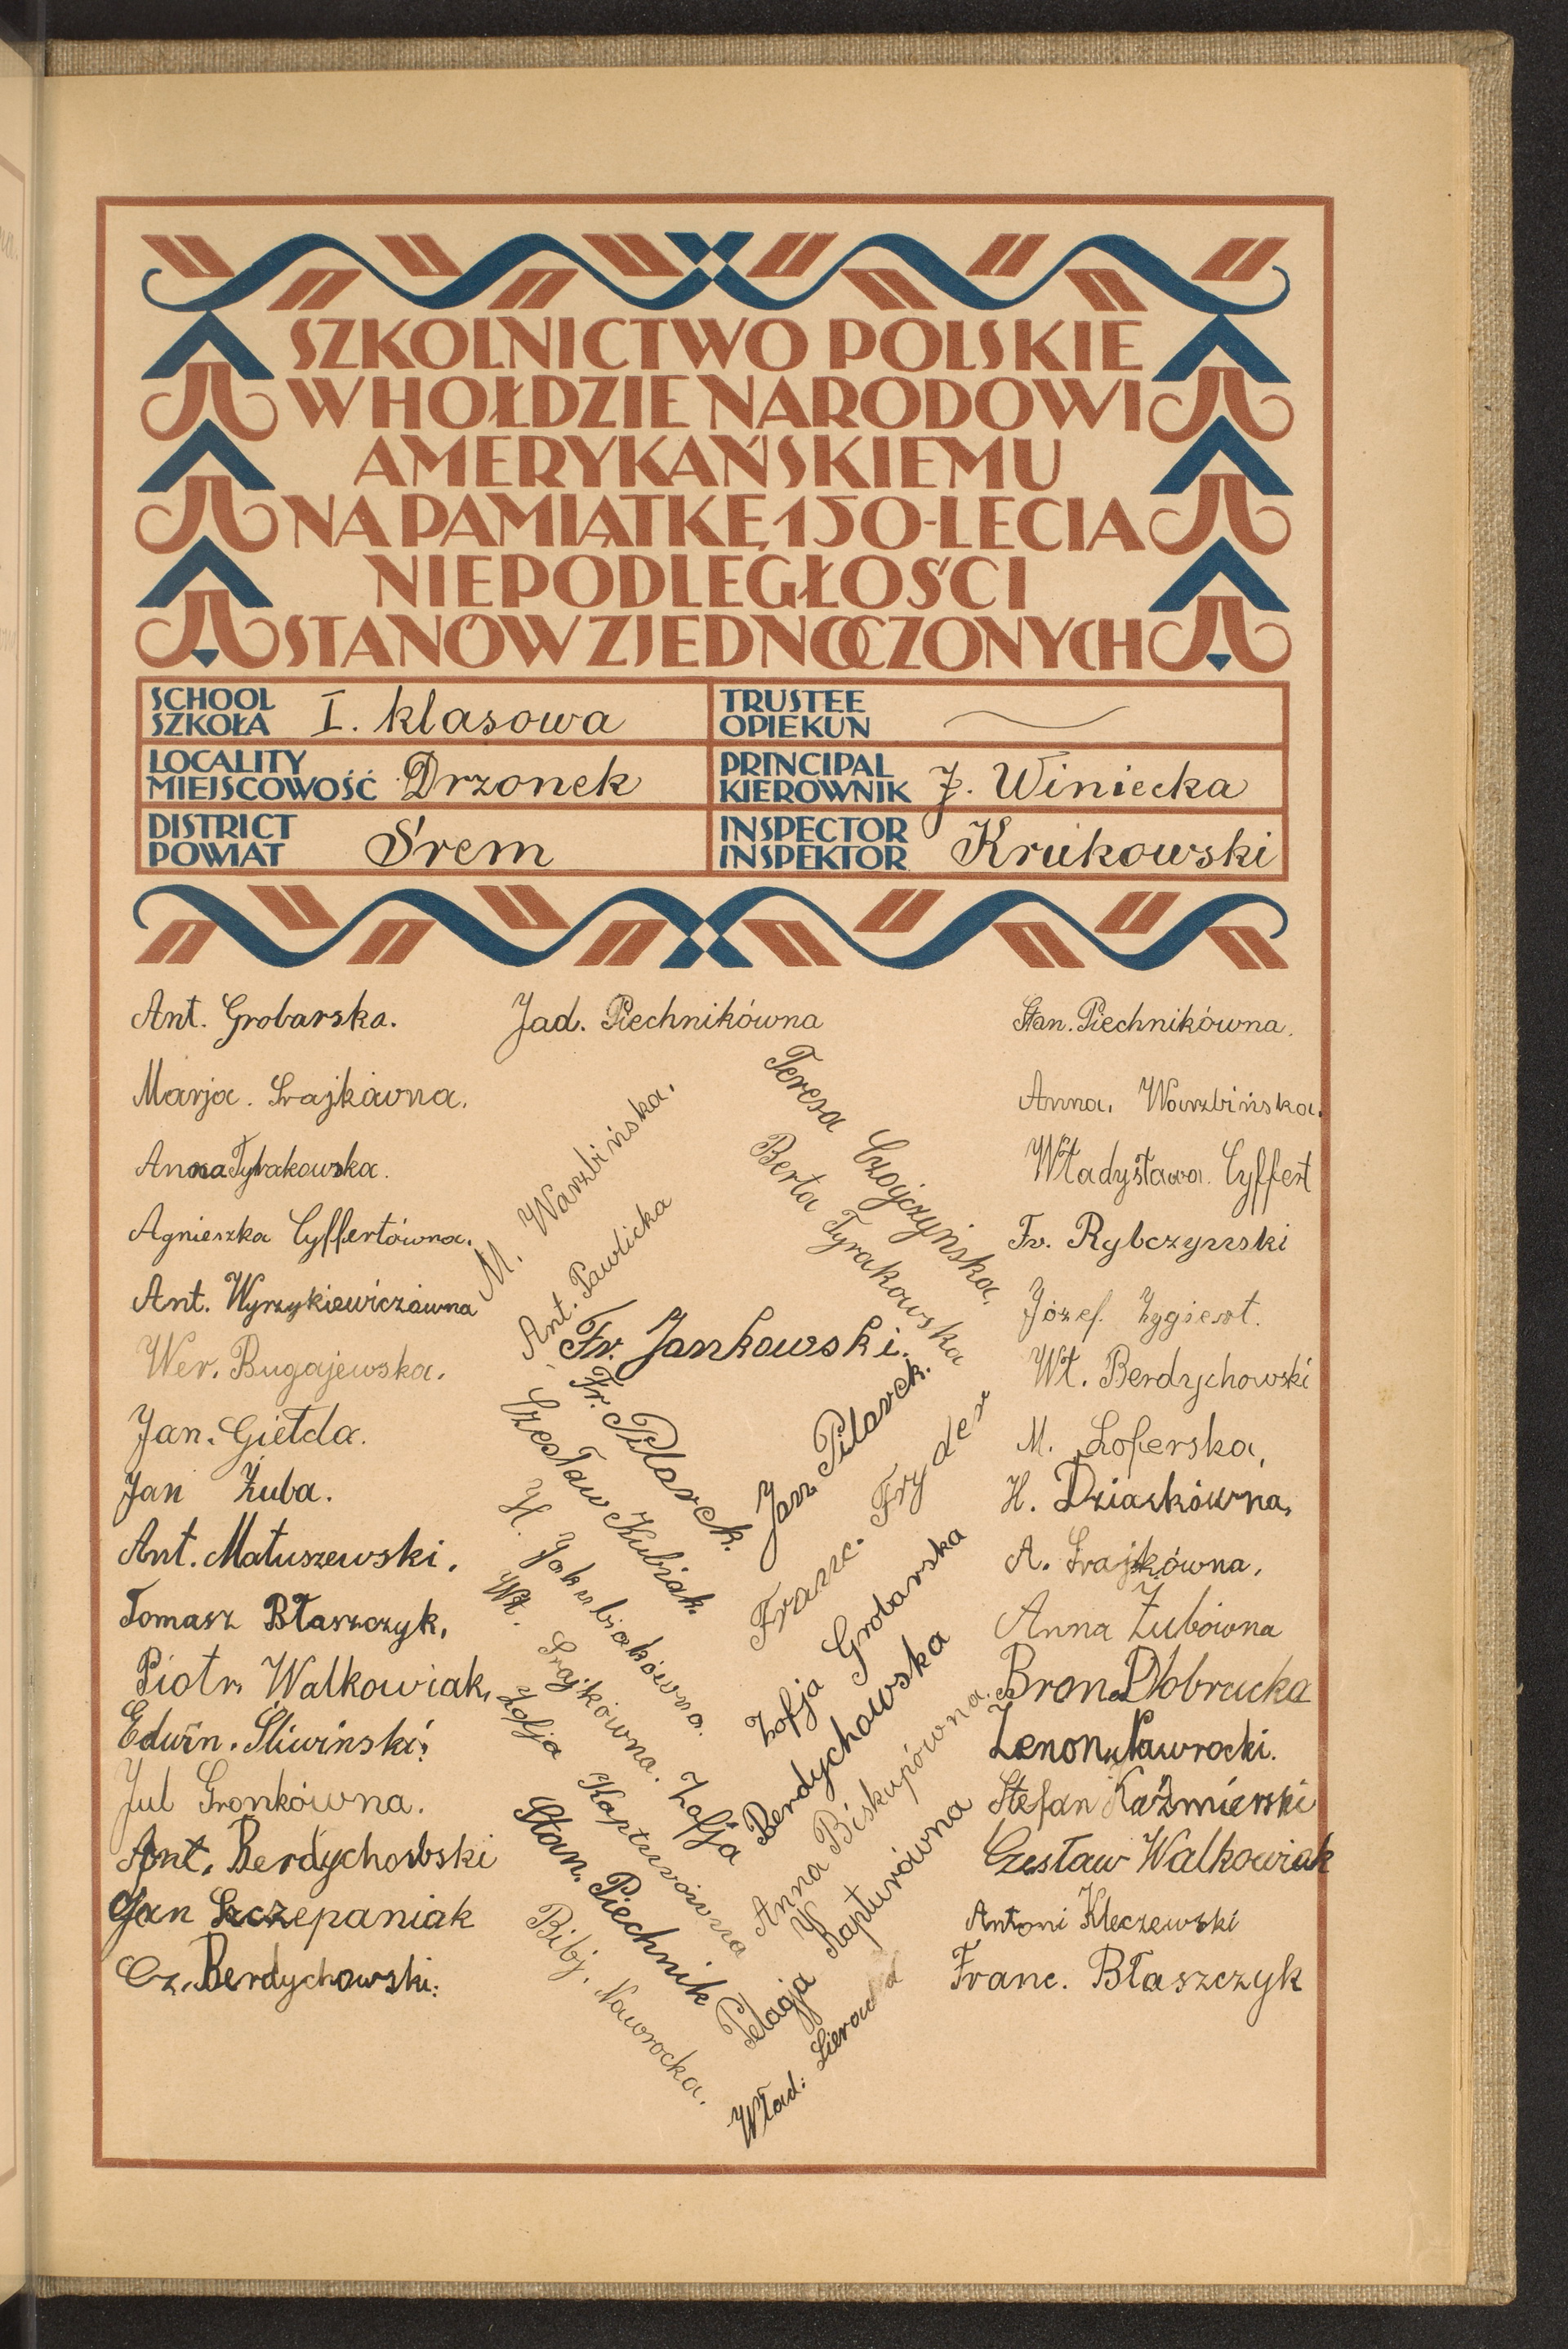 SZKOLNICTWO POLSKIE
W HOŁDZIE NARODOWI
AMERYKAŃSKIEMU
NA PAMIĄTKĘ 150-LECIA
NIEPODLEGŁOŚCI
STANÓW ZJEDNOCZONYCH
SCHOOL
SZKOŁA I. klasowa
TRUSTEE
OPIEKUN
LOCALITY
MIEJSCOWOŚĆ Drzonek
PRINCIPAL
KIEROWNIK J. Winiecka
DISTRICT
POWIAT Śrem
INSPECTOR
INSPEKTOR Krukowski
Ant. Grobarska.
Marja. Srajkówna.
Anna Tyrakowska.
Agnieszka Cyffertówna.
Ant. Wyrzykiewiczówna
Wer. Bugajewska.
Jan. Giełda.
Jan Żuba.
Ant. Matuszewski.
Tomasz Błaszczyk,
Piotr. Walkowiak,
Edwin. Śliwiński.
Jul Gronkówna.
Ant. Berdychowski
Jan Szczepaniak
Cz. Berdychowski.
Jad. Piechnikówna
M. Warzbińska.
Ant. Pawlicka
Teresa Czojczyńska.
Berta Tyrakowska
Fr. Jankowski.
Fr. Pilarek.
Jan Pilarek.
Czesław Kubiak.
Franc. Fryder
H. Jakubiakówna.
Zofja Grobarska
Wł. Srajkówna.
Zofja Berdychowska
Zofja Kapturówna
Anna Biskupówna.
Stan. Piechnik
Pelagja Kapturówna
Bibj. Nawrocka.
Wład.
Stan. Piechnikówna.
Anna. Warzbińska.
Władysława. Cyffert
Fr. Rybczyński
Józef. Zygiert.
Wł. Berdychowski
M. Loferska,
H. Dziaskówna,
A. Srajkówna,
Anna Żubówna
Bron. Dobrucka
Zenon Nawrocki.
Stefan Kaźmierski
Czesław Walkowiak
Antoni Kleczewski
Franc. Błaszczyk